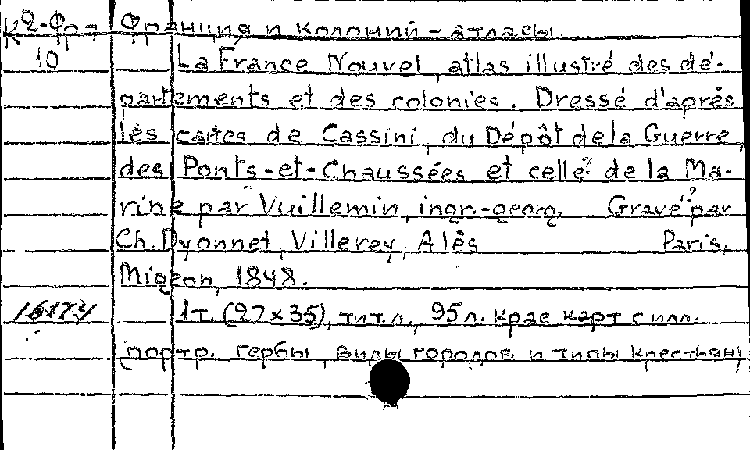 К2-Фр Франция и колоний - атласы.
10 La France Nouvel, atlas illustré des dé-
partements et des colonies. Dressé d'après
lés cartes de Cassini, du Dépôt de la Guerre,
des Ponts-et-Chaussées et celle? de la Ma-
rine par Vuillemin, ingr.-georg. Gravé? par
Ch. Dyonnet, Villerey, Alès Paris,
Migeon, 1848.
1т. (27x35), тит.л., 95л. крас карт с илл.
портр. гербы, виды городов и типы крестьян,